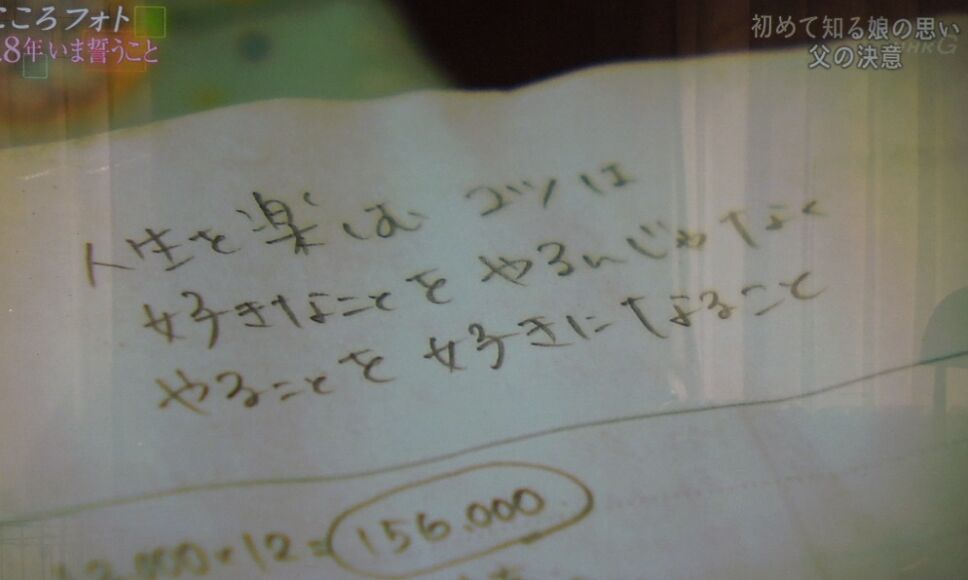 こころフォト
8年いま誓うこと
初めて知る娘の思い
父の決意
NHK G
人生を楽しむ コツは
好きなことをやるんじゃなく
やることを好きになること
×12=156.000